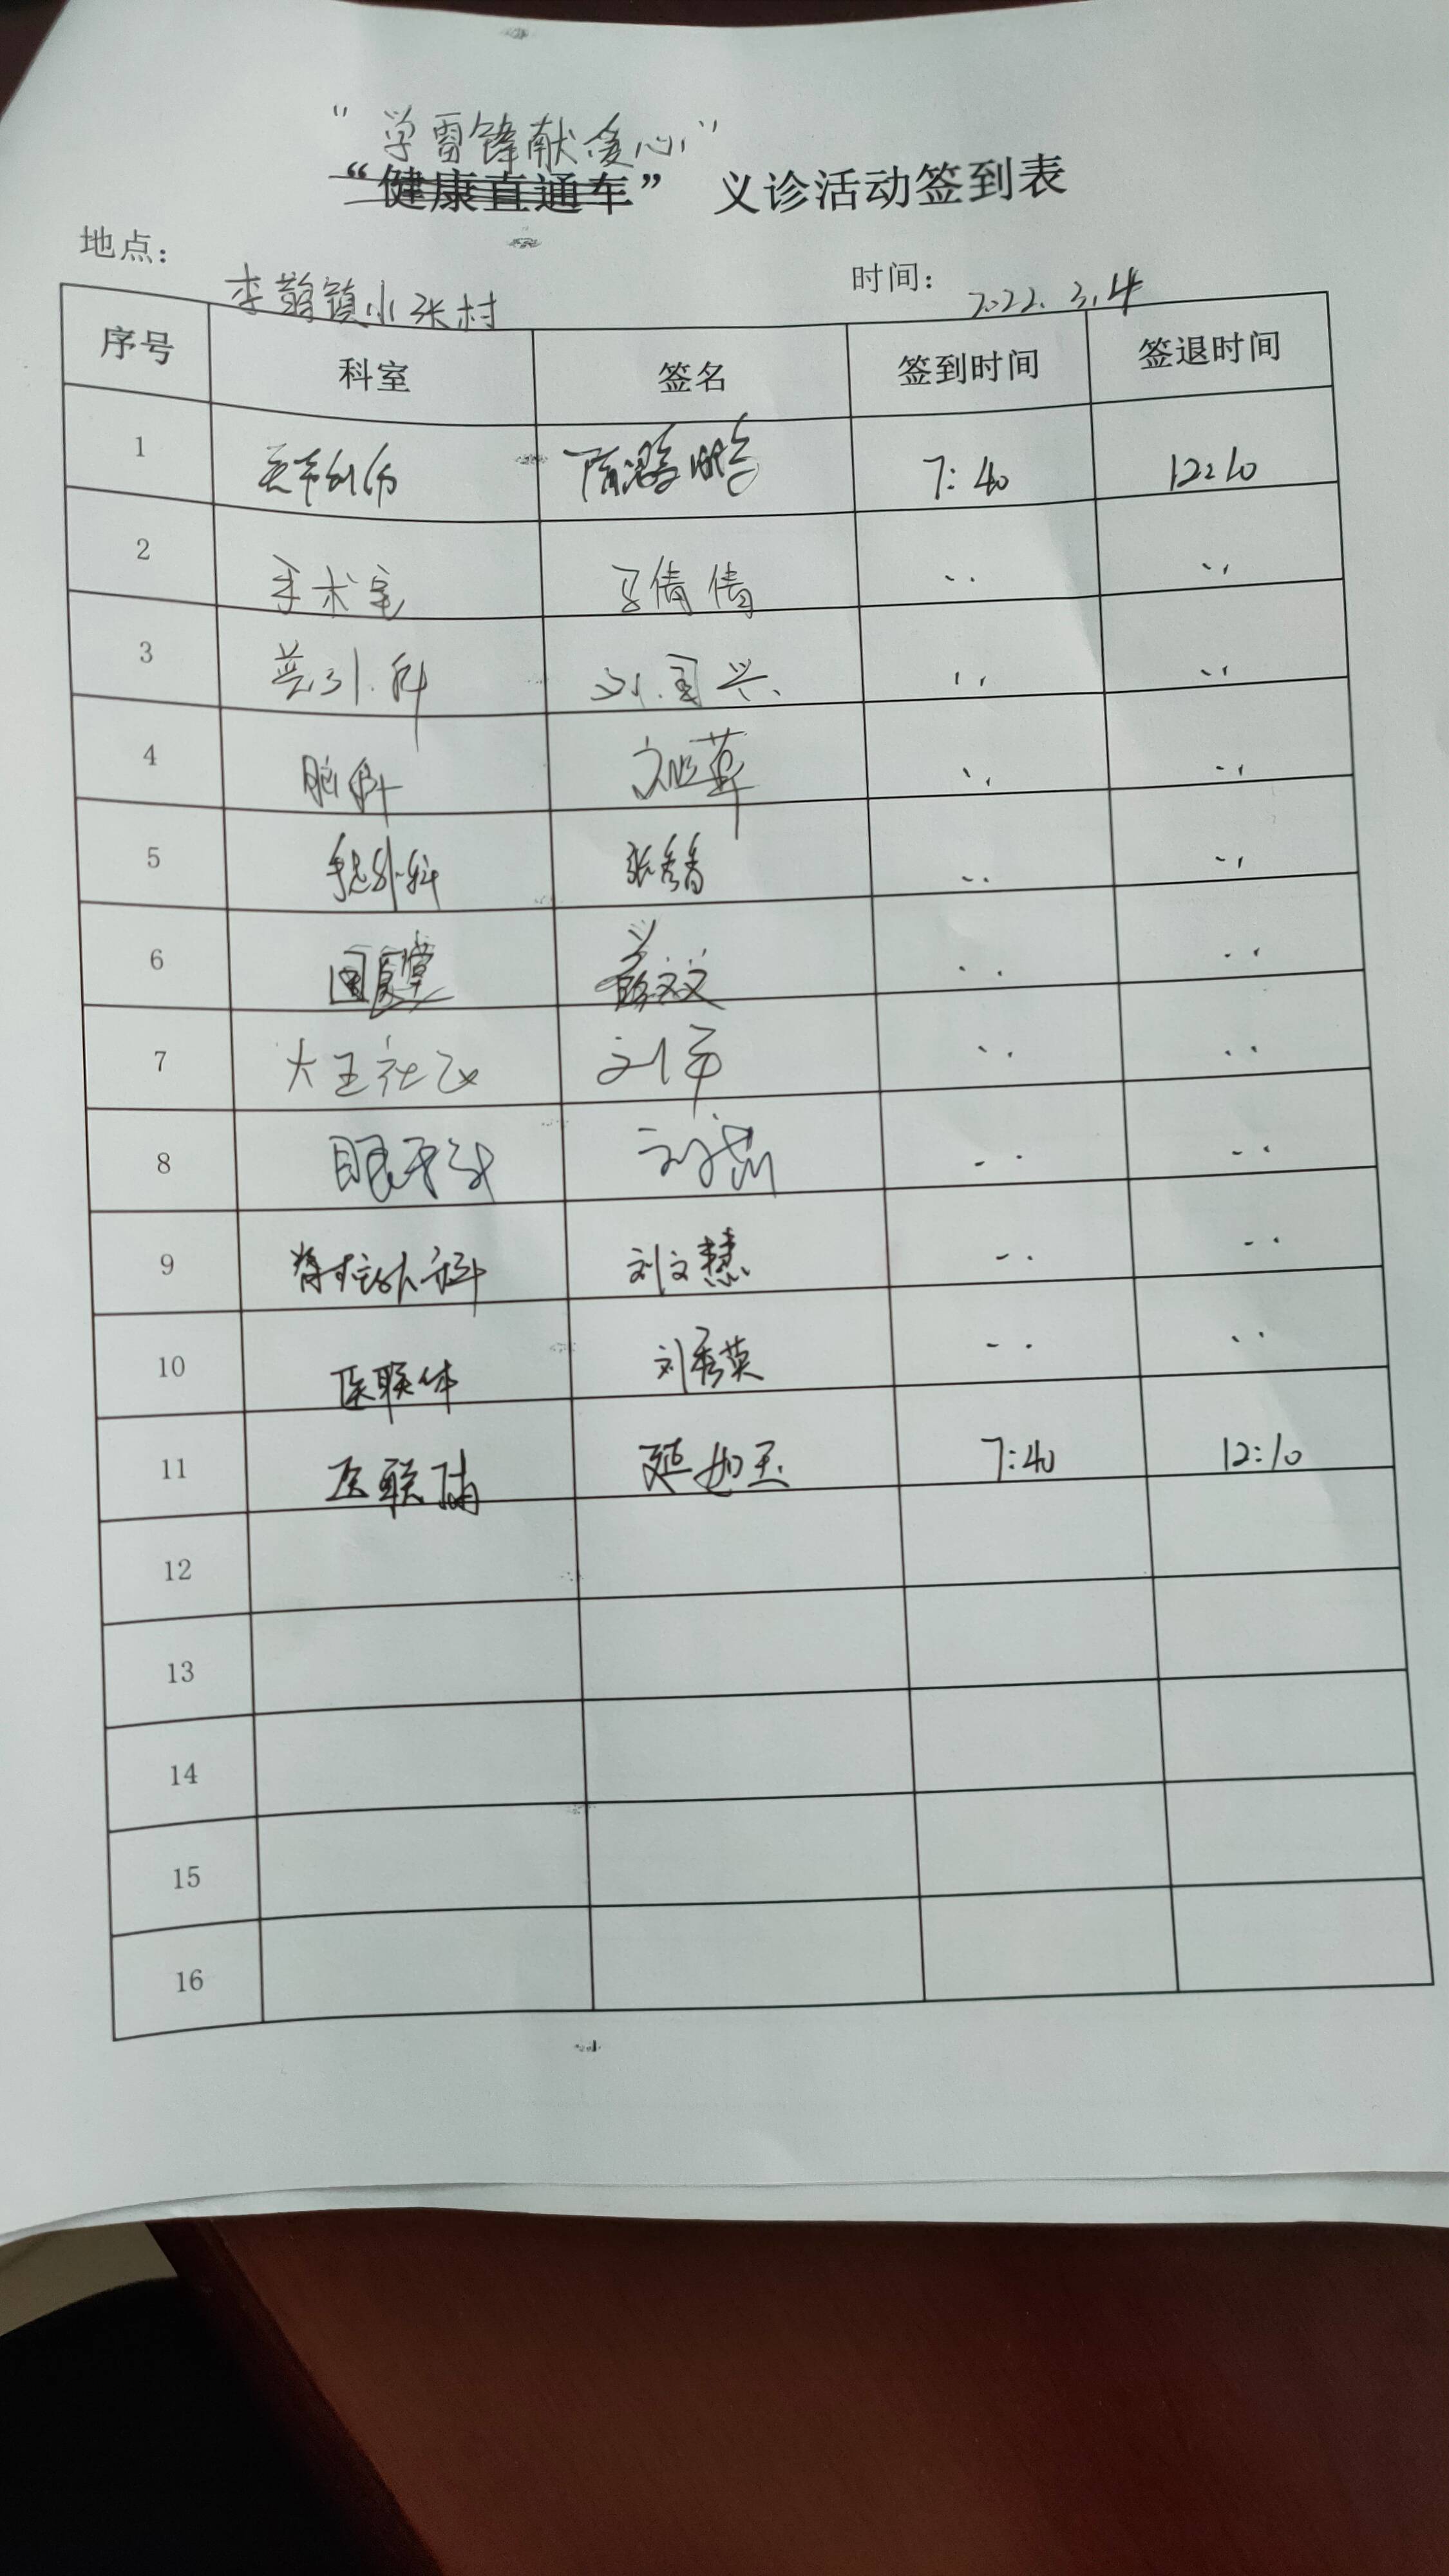 “学雷锋献爱心”
“健康直通车” 义诊活动签到表
地点： 李鹊镇小张村 时间： 2022.3.4
序号 科室 签名 签到时间 签退时间
1 关节创伤 隋鹏 7:40 12:10
2 手术室 马倩倩 、、 、、
3 普外科 刘国兴 、、 、、
4 脑科 、、 、、
5 手足外科 张秀青 、、 、、
6 国医堂 文文 、、 、、
7 大王社区 刘军 、、 、、
8 眼科 刘 、、 、、
9 脊柱外科 刘文慧 、、 、、
10 医联体 刘秀英 、、 、、
11 医联体 延如玉 7:40 12:10
12
13
14
15
16